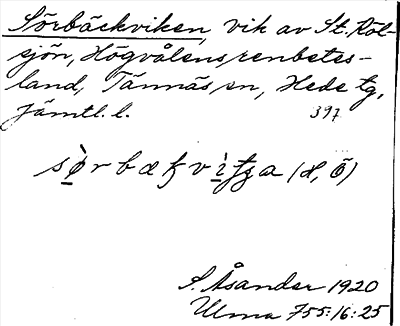 Sörbäckviken, vik av St. Röl-
sjön, Högvålens renbetes-
land, Tännäs sn, Hede tg,
Jämtl. l. 397
(H, Ö)
S. Åsander 1920
Ulma 755:16:25